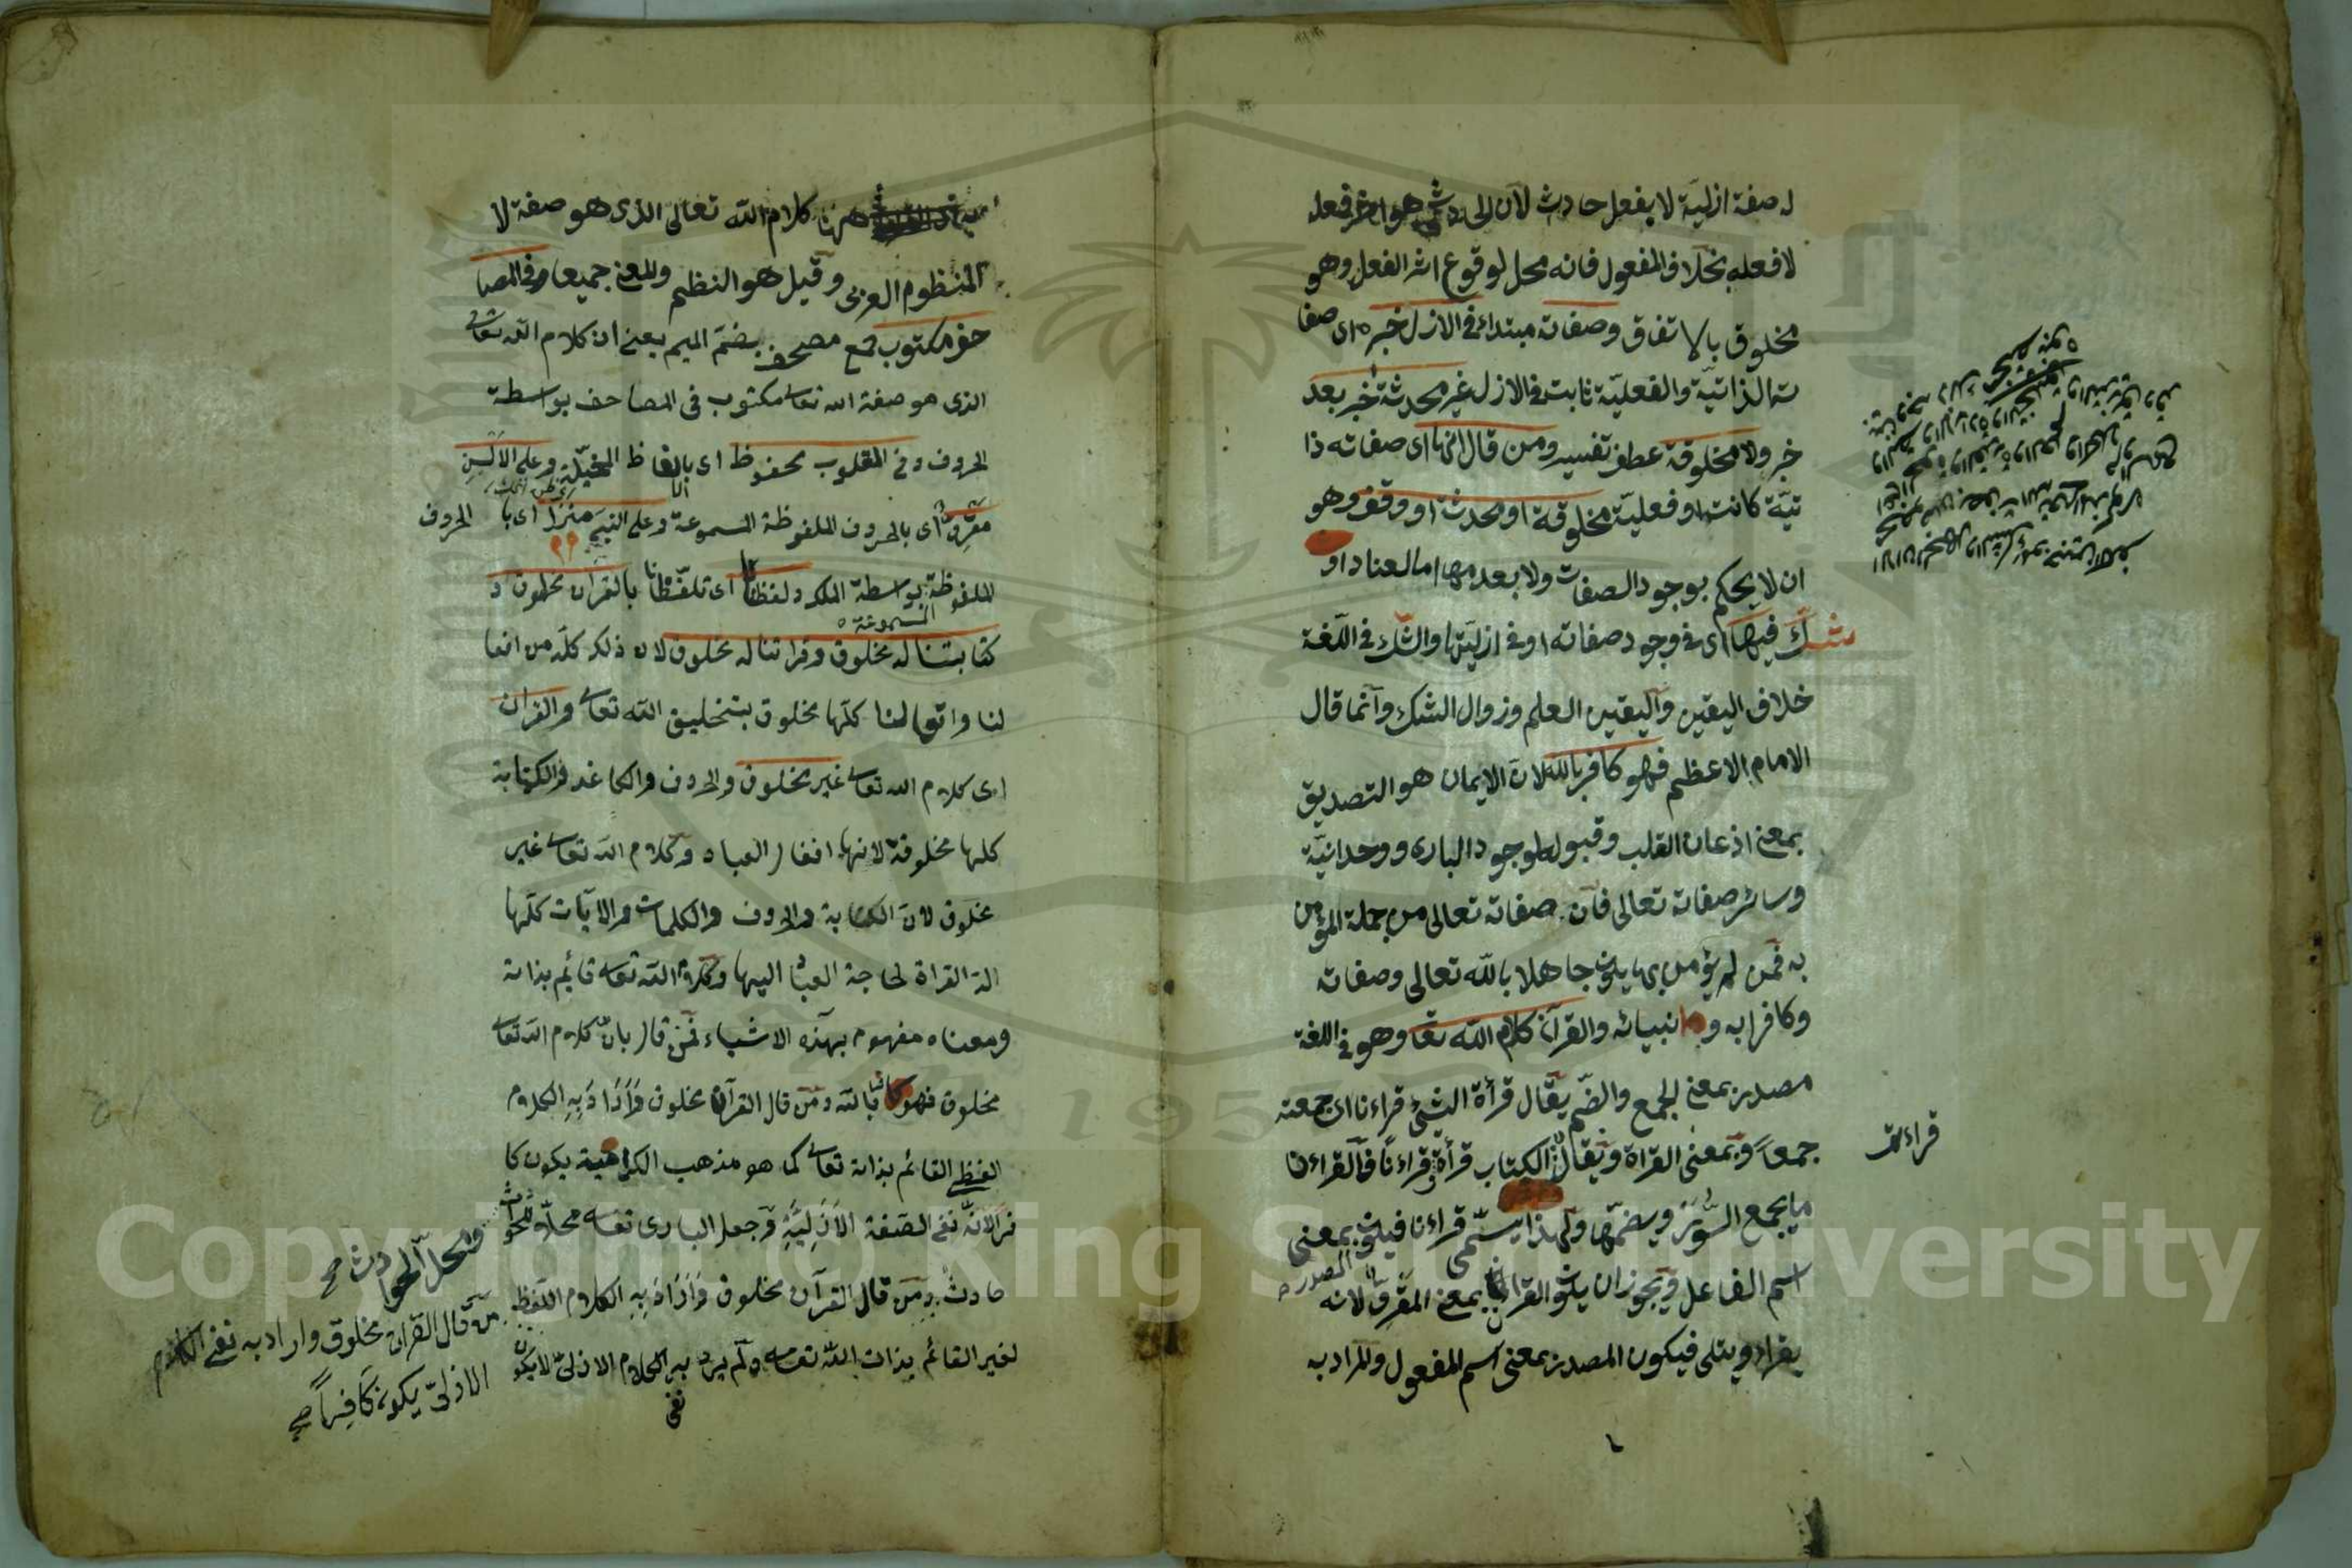 له صفة ازلية لا بفعل حادث لان الحادث هو اثر فعله
لا فعله بخلاف المفعول فانه محل لوقوع اثر الفعل وهو
مخلوق بالاتفاق وصفاته مبتداء في الازل خبره اى صفا
ته الذاتية والفعلية ثابت في الازل غير محدثة خبر بعد
خبر ولا مخلوقة عطف تفسير ومن قال انها اى صفاته ذا
تية كانت او فعلية مخلوقة او محدثة او وقف وهو
ان لا يحكم بوجود الصفات ولا بعدمها اما لعناد او
شك فيها اى في وجود صفاته او في ازليتها والشك في اللغة
خلاف اليقين واليقين العلم وزوال الشك وانما قال
الامام الاعظم فهو كافر بالله لان الايمان هو التصديق
بمعنى اذعان القلب وقبوله لوجود البارى ووحدانية
وسائر صفاته تعالى فان صفاته تعالى من جملة المؤمن
به فمن لم يؤمن بها يكون جاهلا بالله تعالى وصفاته
وكافرا به وبانبيائه والقرآن كلام الله تعا وهو في اللغة
مصدر بمعنى الجمع والضم يقال قرأة الشئ قراءنا اى جمعته
جمعا وبمعنى القراة ويقال الكتاب قرأة قراءنا فالقراءن
ما يجمع السور ويضمها ولهذا يسمى قراءنا فيكون بمعنى
اسم الفاعل ويجوز ان يكون القرآن بمعنى المقرو لانه
يقراء ويتلى فيكون المصدر بمعنى اسم المفعول والمراد به
المصدر
قراءته
ههنا كلام الله تعالى الذى هو صفة لا
المنظوم العربى وقيل هو النظم والمعنى جميعا وفي المصا
حف مكتوب جمع مصحف بضم الميم يعنى ان كلام الله تعالى
الذى هو صفة الله تعالى مكتوب في المصاحف بواسطة
الحروف وفي القلوب محفوظ اى بالفاظ المخيلة وعلى الالسن
مقرو اى بالحروف الملفوظة المسموعة وعلى النبى منزل اى با الحروف
الملفوظة بواسطة الملك ولفظنا اى تلفظنا بالقرآن مخلوق و
المسموعة
كتابتنا له مخلوق وقراتنا له مخلوق لان ذلك كله من افعا
لنا وافعالنا كلها مخلوق بتخليق الله تعالى والقرآن
اى كلام الله تعالى غير مخلوق والحروف والكاغد والكتابة
كلها مخلوقة لانها افعال العباد وكلام الله تعالى غير
مخلوق لان الكتابة والحروف والكلمات والايات كلها
الة القراة لحاجة العباد اليها وكلام الله تعالى قائم بذاته
ومعناه مفهوم بهذه الاشياء فمن قال بان كلام الله تعالى
مخلوق فهو كافر بالله ومن قال القرآن مخلوق واراد به الكلام
اللفظى القائم بذاته تعالى كما هو مذهب الكرامية يكون كا
فرا لانه نفى الصفة الازلية وجعل البارى تعالى محلا للحوا
حادث ومن قال القرآن مخلوق واراد به الكلام اللفظى
الغير القائم بذات الله تعالى ولم يرد به نفى الكلام الازلى لا يكون
ومحل الحوادث صح
من قال القرآن مخلوق واراد به نفى الكلام
الازلى يكون كافرا صح
Copyright © King Saud University
1957